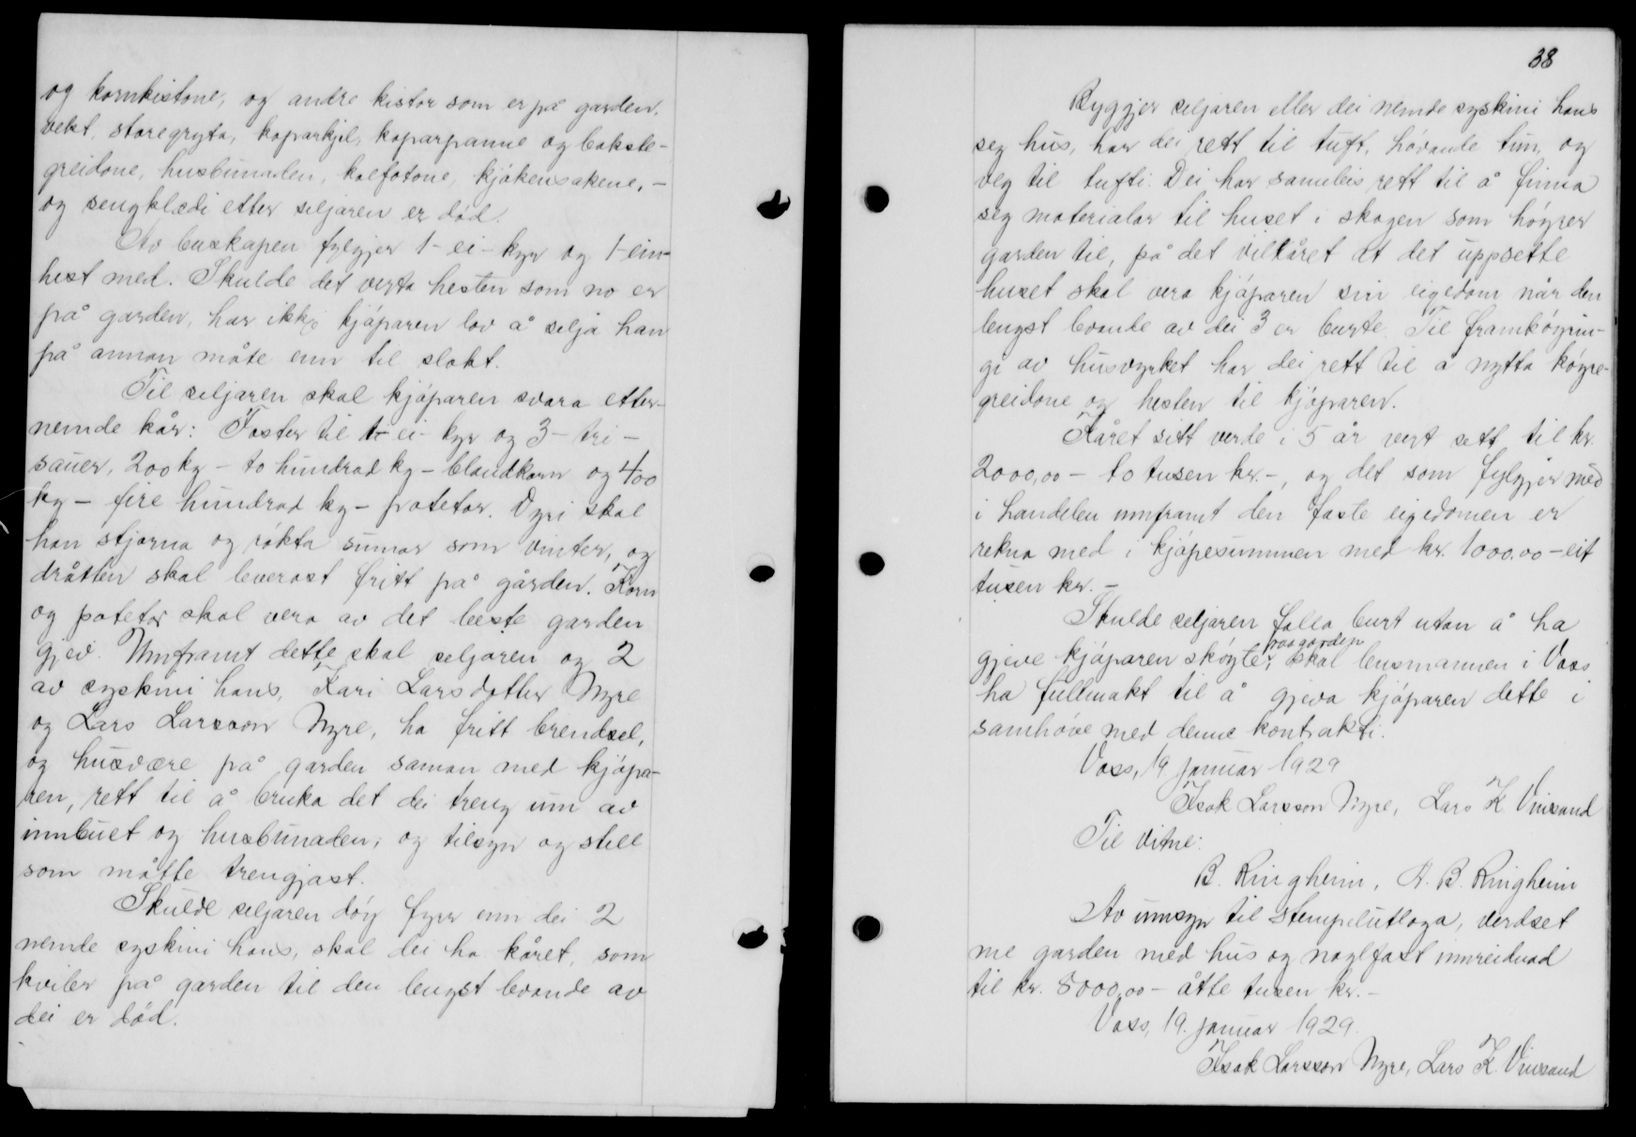 og kornkistone, og andre kistor som er på garden.
vekt, storegryta, koparkjel, koparpanne og bakste-
greidone, husbunaden, kolfotone, kjøkensakene, -
og sengklædi etter seljaren er død.
Av buskapen fylgjer 1- ei - kyr og 1- ein-
hest med. Skulde det verta hesten som no er
på garden, har ikkje kjøparen lov å selja han
på annan måte enn til slakt.
Til seljaren skal kjøparen svara etter-
nemde kår: Foster til 1- ei - kyr og 3 - tri -
sauer, 200 kg - to hundrad kg - blandkorn og 400
kg - fire hundrad kg - poteter. Dyri skal
han stjorna og røkta sumar som vinter, og
dråtten skal leverast fritt på gården. Korn
og poteter skal vera av det beste garden
gjev. Umframt dette skal seljaren og 2
av syskini hans, Kari Larsdotter Nyre
og Lars Larsson Nyre, ha fritt brendsel,
og husvære på garden saman med kjøpa-
ren, rett til å bruka det dei treng um av
innbuet og husbunaden, og tilsyn og stell
som måtte trengjast.
Skulde seljaren døy fyrr enn dei 2
nemde syskini hans, skal dei ha kåret, som
kviler på garden til den lengst levande av
dei er død.
38
Byggjer seljaren eller dei nemde syskini hans
seg hus, har dei rett til tuft, høvande tun, og
veg til tufti. Dei har sameleis rett til å finna
seg materialar til huset i skogen som høyrer
garden til, på det vilkåret at det uppsette
huset skal vera kjøparen sin eigedom når den
lengst levande av dei 3 er burte. Til framkøyrin-
gi av husvyrket har dei rett til å nytta køyre-
greidone og hesten til kjøparen.
Kåret sitt verde i 5 år vert sett til kr.
2000,00 - to tusen kr. -, og det som fylgjer med
i handelen umframt den faste eigedomen er
rekna med i kjøpesummen med kr. 1000.00 - eit
tusen kr. -
Skulde seljaren falla burt utan å ha
gjeve kjøparen skøyte paa garden, skal lensmannen i Voss
ha fullmakt til å gjeva kjøparen dette i
samhøve med denne kontrakti.
Voss, 19 januar 1929
Isak Larsson Nyre, Lars K. Vinsand
Til vitne:
B. Ringheim, A. B. Ringheim
Av umsyn til stempelutloga, verdset
me garden med hus og naglfast innreidnad
til kr. 8000,00 - åtte tusen kr. -
Voss, 19. januar 1929.
Isak Larsson Nyre, Lars K. Vinsand